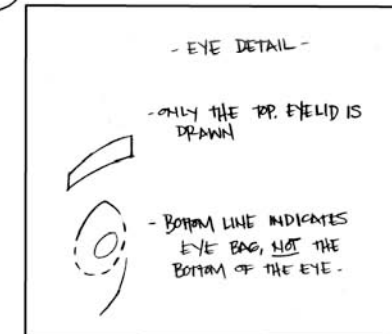 - EYE DETAIL -
- ONLY THE TOP. EYELID IS
DRAWN
- BOTTOM LINE INDICATES
EYE BAG, NOT THE
BOTTOM OF THE EYE.